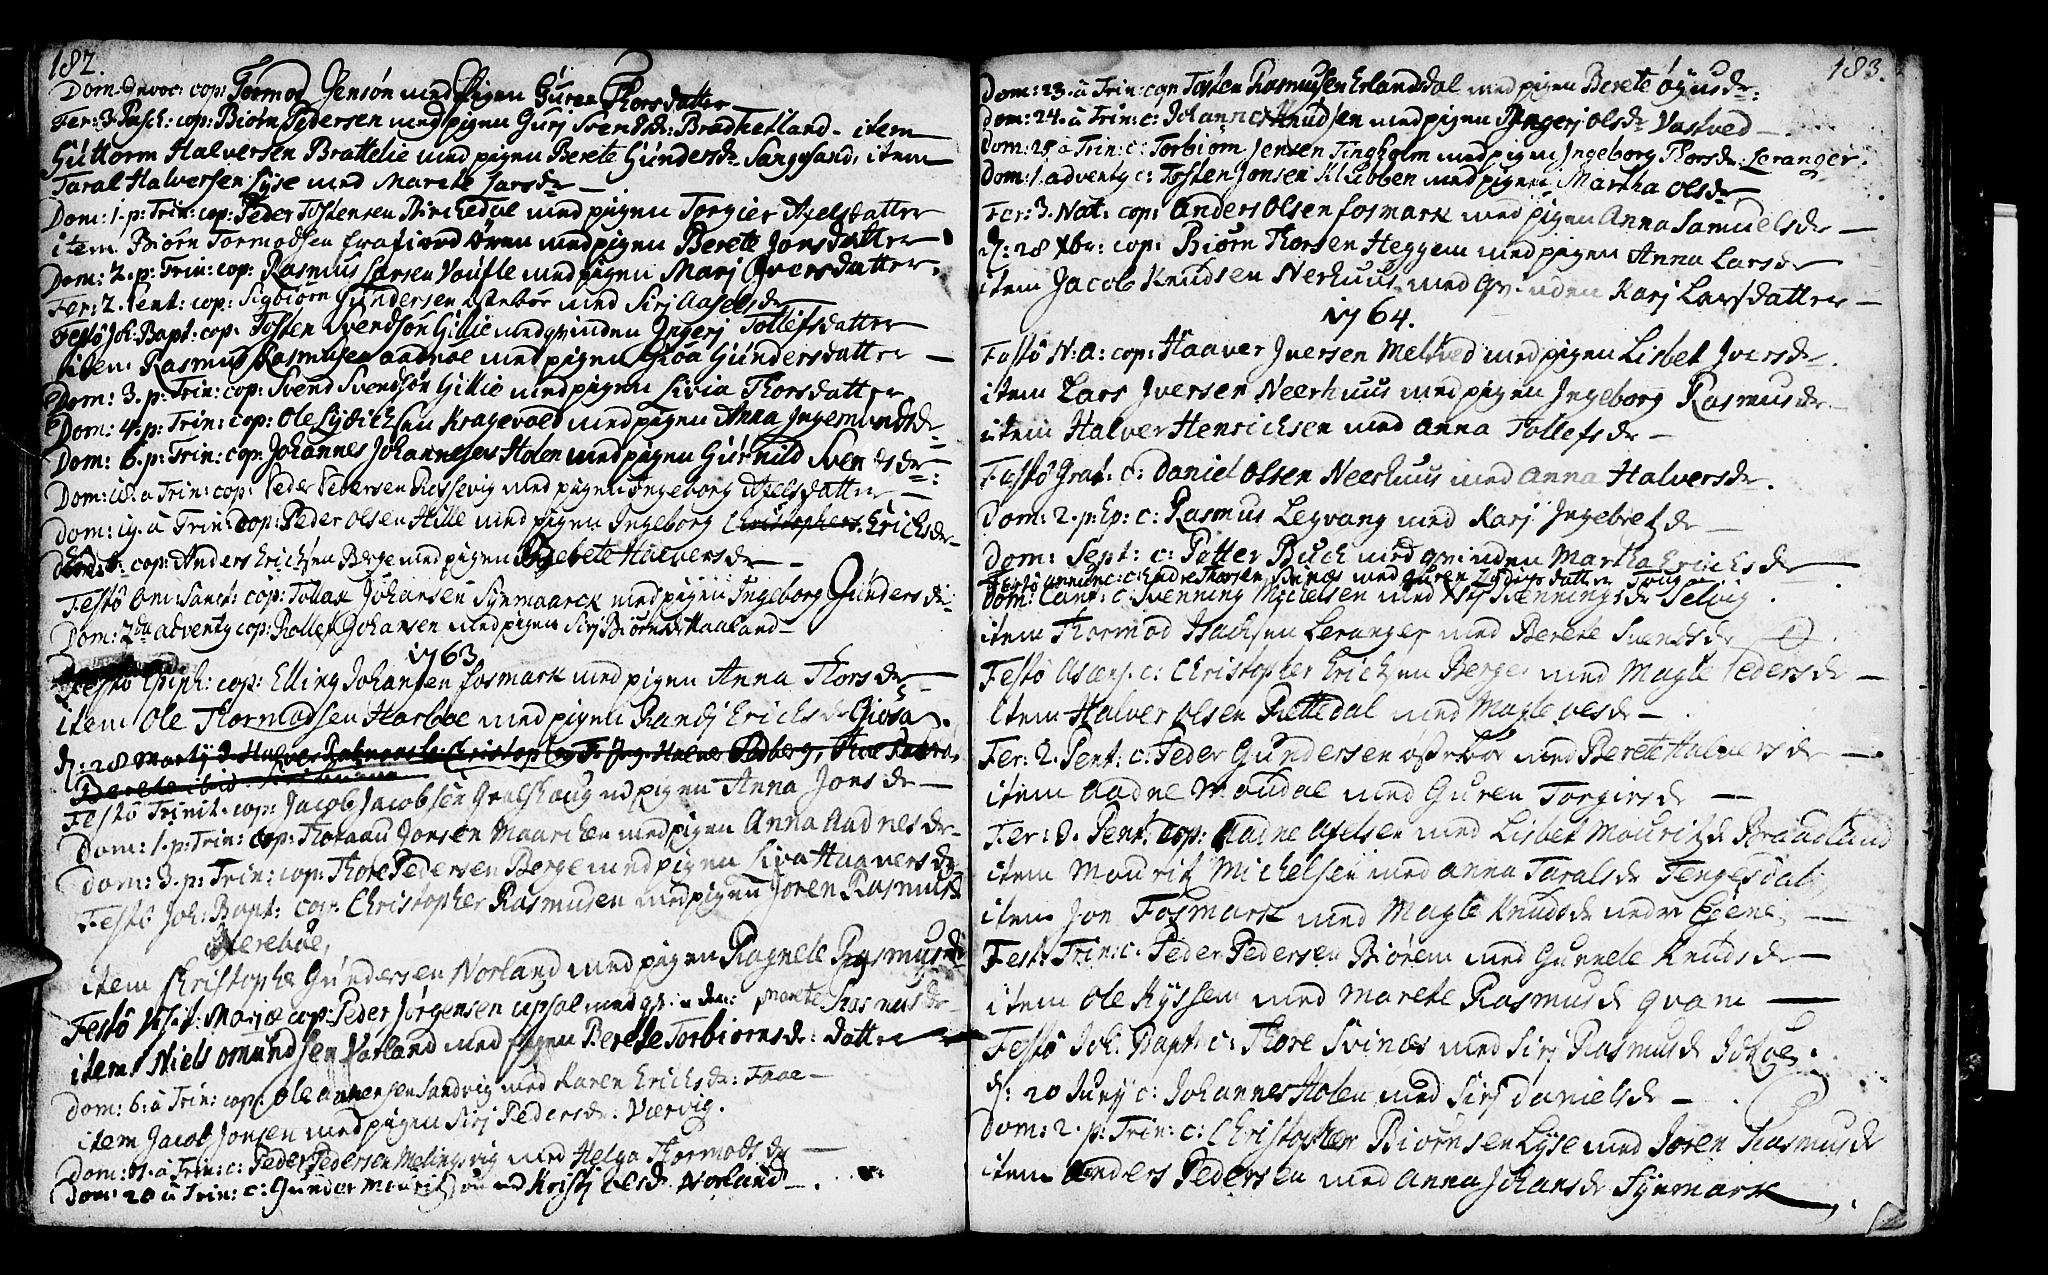 182.
Dom: Invoc: cop: Tormod Jensøn med Pigen Guren Thorsdatter
Fer: 3 Pasch: cop: Biørn Pedersen med pigen Gurj Svendsdr: Bradhetland - item
Guttorm Halversen Brattelie med pigen Berete Gundersdr Sangesand, item
Taral Halversen Lyse med Marete Larsdr
Dom: 1. p: Trin: cop: Peder Tostensen Birchedal med pigen Torgier Axelsdatter
item Biørn Tormodsen med pigen Berete Jonsdatter
Dom: 2. p: Trin: cop: Rasmus Larsen Voufle med pigen Marj Iversdatter.
Fer: 2. Pent: cop: Sigbiørn Gundersen østebør med Sirj Aselsdr
Festo Joh: Bapt: cop: Tosten Svendsøn Gillie med qvinden Ingerj Tollefsdatter
item Rasmus Rasmusen aadnøe med pigen Giøa Gundersdatter
Dom: 3. p: Trin: cop: Svend Svendsøn Gillie med pigen Livia Thorsdatter
Dom: 4. p: Trin: cop: Ole Lydichsen Kragevoed med pigen Anna Ingemundsdr
Dom: 6. p: Trin: cop: Johannes Johannesen Holen med pigen Gurnild Svendsdr
Dom: 18. a Trin: cop: Peder Pedersen Rossevig med pigen Ingeborg Axelsdatter
Dom: 19. a Trin: cop: Peder olsen Hille med pigen Ingeborg Christophers. Erichsdr
cop: Anders Erichsen Berge med pigen Berete Halversdr
Festo Om: Sanct: cop: Tollak Johansen Synmaarck med pigen Ingeborg Gundersdr
Dom: 2da adventg cop: Rollef Johansen med pigen Sirj Biørnsdr Haaland
1763
Festo Epiph: cop: Elling Johansen fosmark med pigen Anna Thorsdr
item Ole Thormodsen Harboe med pigen Randj Erichsdr Giosa.
d: 28 Martij
Berete ibid.
Festo Trinit: cop: Jacob Jacobsen Gralshaug m pigen Anna Jonsdr
Dom: 1. p: Trin: cop: Jonsen Maarchen med pigen Anna Aadnesdr
Dom: 3. p: Trin: cop: Thore Pedersen Berge med pigen Liva Haaversdr
Festo Joh: Bapt: cop: Christopher Rasmusen med pigen Joren Rasmusdr
Nereboe,
item Christopher Gundersen Norland med pigen Ragnele Rasmusdr
Festo Visit: Mariæ cop: Peder Jørgensen upsal med qvinden Marete Rasmusdr
item Niels omundsen Varland med pigen Berete Torbiornsdr: datter
Dom: 6. a Trin: cop: Ole annensen Sandvig med Karen Erichsdr: Faae
item Jacob Jonsen med pigen Sirj Pedersdr. Værvig.
Dom: a Trin: c: Peder Pedersen Melingsvig med Helga Thormodsdr
Dom: 20 a Trin: c: Gunder Mouritz med Kirstj olesdr Norland
183.
Dom: 23. a Trin: cop Tosten Rasmusen Erlandsdal med pigen Berete øyusdr:
Dom: 24. a Trin: c: Johannes Knudsen med pigen Ingerj olsdr Vastved
Dom: 25 a Trin: c: Torbiørn Jensen Tingholm med pigen Ingeborg Thorsdr: Leranger.
Dom: 1. adventg c: Tosten Jonsen Klubben med pigen Martha olsdr
Fer: 3. Nat: cop: Anders Olsen fosmark med pigen Anna Samuelsdr
d: 28 Xbr: cop: Biørn Thorsen Heggem med pigen Anna Larsdr
item Jacob Knudsen Nerhuus med qvinden Karj Larsdatter
1764.
Festo N: A: cop: Haaver Iversen Meltved med pigen Lisbet Iversdr.
item Lars Iversen Neerhuus med pigen Ingeborg Rasmusdr
item Halver Henrichsen med Anna Tollefsdr
Festo Grat: c: Daniel Olsen Neerhuus med Anna Halversdr.
Dom: 2. p: Ep: c: Rasmus Legvang med Karj Ingebretzdr
Dom: Sept: c: Petter Buch med qvinden Martha Erichsdr
Festo annunc: c: Endre Thorsen Svinæs med Guren Lydichsdatter
Dom: Cant: c: Svenning Michelsen med Svenningsdr Selvig.
item Thormod Isachsen Leranger med Berete Svendsdr
Festo Ascens: c: Christopher Erichsen Berge med Magle Pedersdr
item Halver olsen Rettedal med Magle olsdr
Fer: 2. Pent: c: Peder Gundersen østebør med Berete Halversdr
item Aadne Moudal med Guren Torgirsdr
Fer: 3. Pent: cop: Aadne Axelsen med Lisbet Mouritzdr Braadland
item Mouritz Michelsen med Anna Taralsdr Tengesdal
item Jon Fosmark med Magle Knudsdr nedre Egene
Fest: Trin: c: Peder Pedersen Biørem med Gunnele Knudsdr
item Ole Kyssem med Marete Rasmusdr qvam
Festo Joh: Bapt: c: Thore Svinæs med Sirj Rasmusdr Idsøe
d: 20 Junij c: Johannes Holen med Sirj danielsdr
Dom: 2. p: Trin: c: Christopher Biørnsen Lyse med Joren Rasmusdr
item Anders Pedersen med Anna Johansdr Synmark